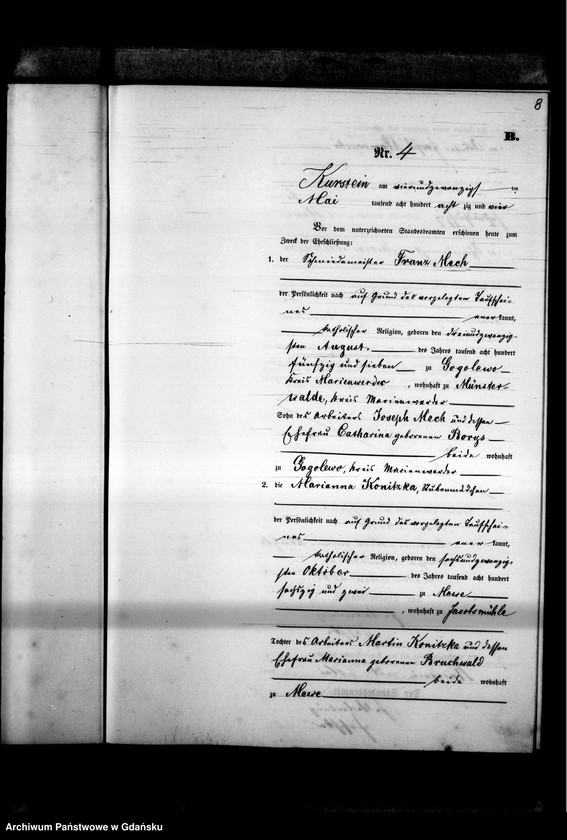 8
B.
Nr. 4
Kurstein am vierundzwanzigsten
Mai tausend acht hundert acht zig und vier
Vor dem unterzeichneten Standesbeamten erschienen heute zum
Zweck der Eheschließung:
1. der Schmiedemeister Franz Mech
der Persönlichkeit nach auf Grund des vorgelegten Taufschei-
nes aner kannt,
katholischer Religion, geboren den dreiundzwanzig-
sten August des Jahres tausend acht hundert
fünfzig und sieben zu Gogolewo
Kreis Marienwerder, wohnhaft zu Münster-
walde, Kreis Marienwerder
Sohn des Arbeiters Joseph Mech und dessen
Ehefrau Catharina geborenen Borys
beide wohnhaft
zu Gogolewo, Kreis Marienwerder
2. die Marianna Konitzka, Stubenmädchen
der Persönlichkeit nach auf Grund des vorgelegten Taufschei-
nes aner kannt,
katholischer Religion, geboren den sechsundzwanzig-
sten Oktober des Jahres tausend acht hundert
sechszig und zwei zu Mewe
, wohnhaft zu Jacobsmühle
Tochter des Arbeiters Martin Konitzka und dessen
Ehefrau Marianna geborenen Bruchwald
beide wohnhaft
zu Mewe
Archiwum Państwowe w Gdańsku